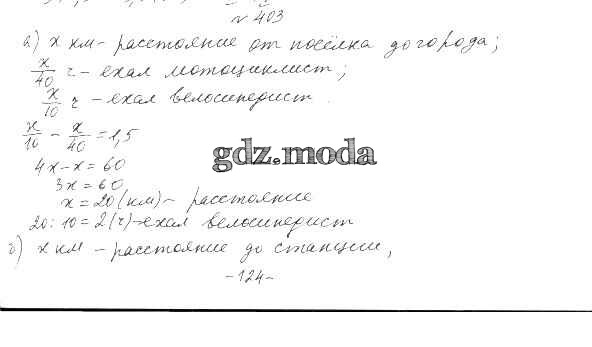 № 403
а) x км - расстояние от посёлка до города;
x/40 ч - ехал мотоциклист;
x/10 ч - ехал велосипедист.
x/10 - x/40 = 1,5
gdz.moda
4x - x = 60
3x = 60
x = 20 (км) - расстояние
20 : 10 = 2 (ч) - ехал велосипедист
б) x км - расстояние до станции,
-124-